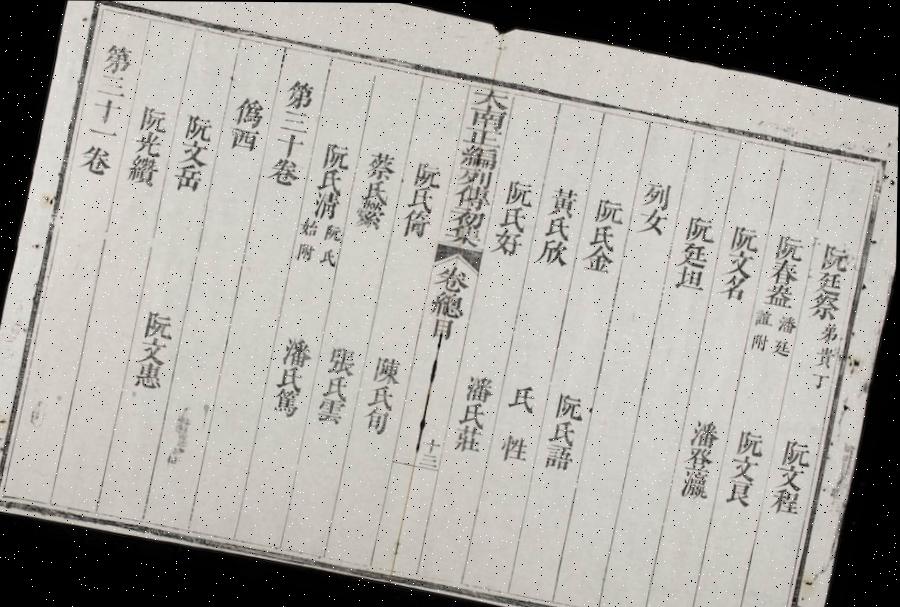 阮廷祭 弟貴丁 阮文程
阮春盎 潘廷誼附 阮文良
阮文名
阮廷垣 潘登瀛
列女
阮氏金 阮氏語
黃氏欣 氏性
阮氏好 潘氏莊
大南正編列傳初集 卷總目 十三
阮氏倚 陳氏旬
蔡氏縈 張氏雲
阮氏清 阮氏始附 潘氏篤
第三十卷
僞西
阮文岳 阮文惠
阮光纘
第三十一卷